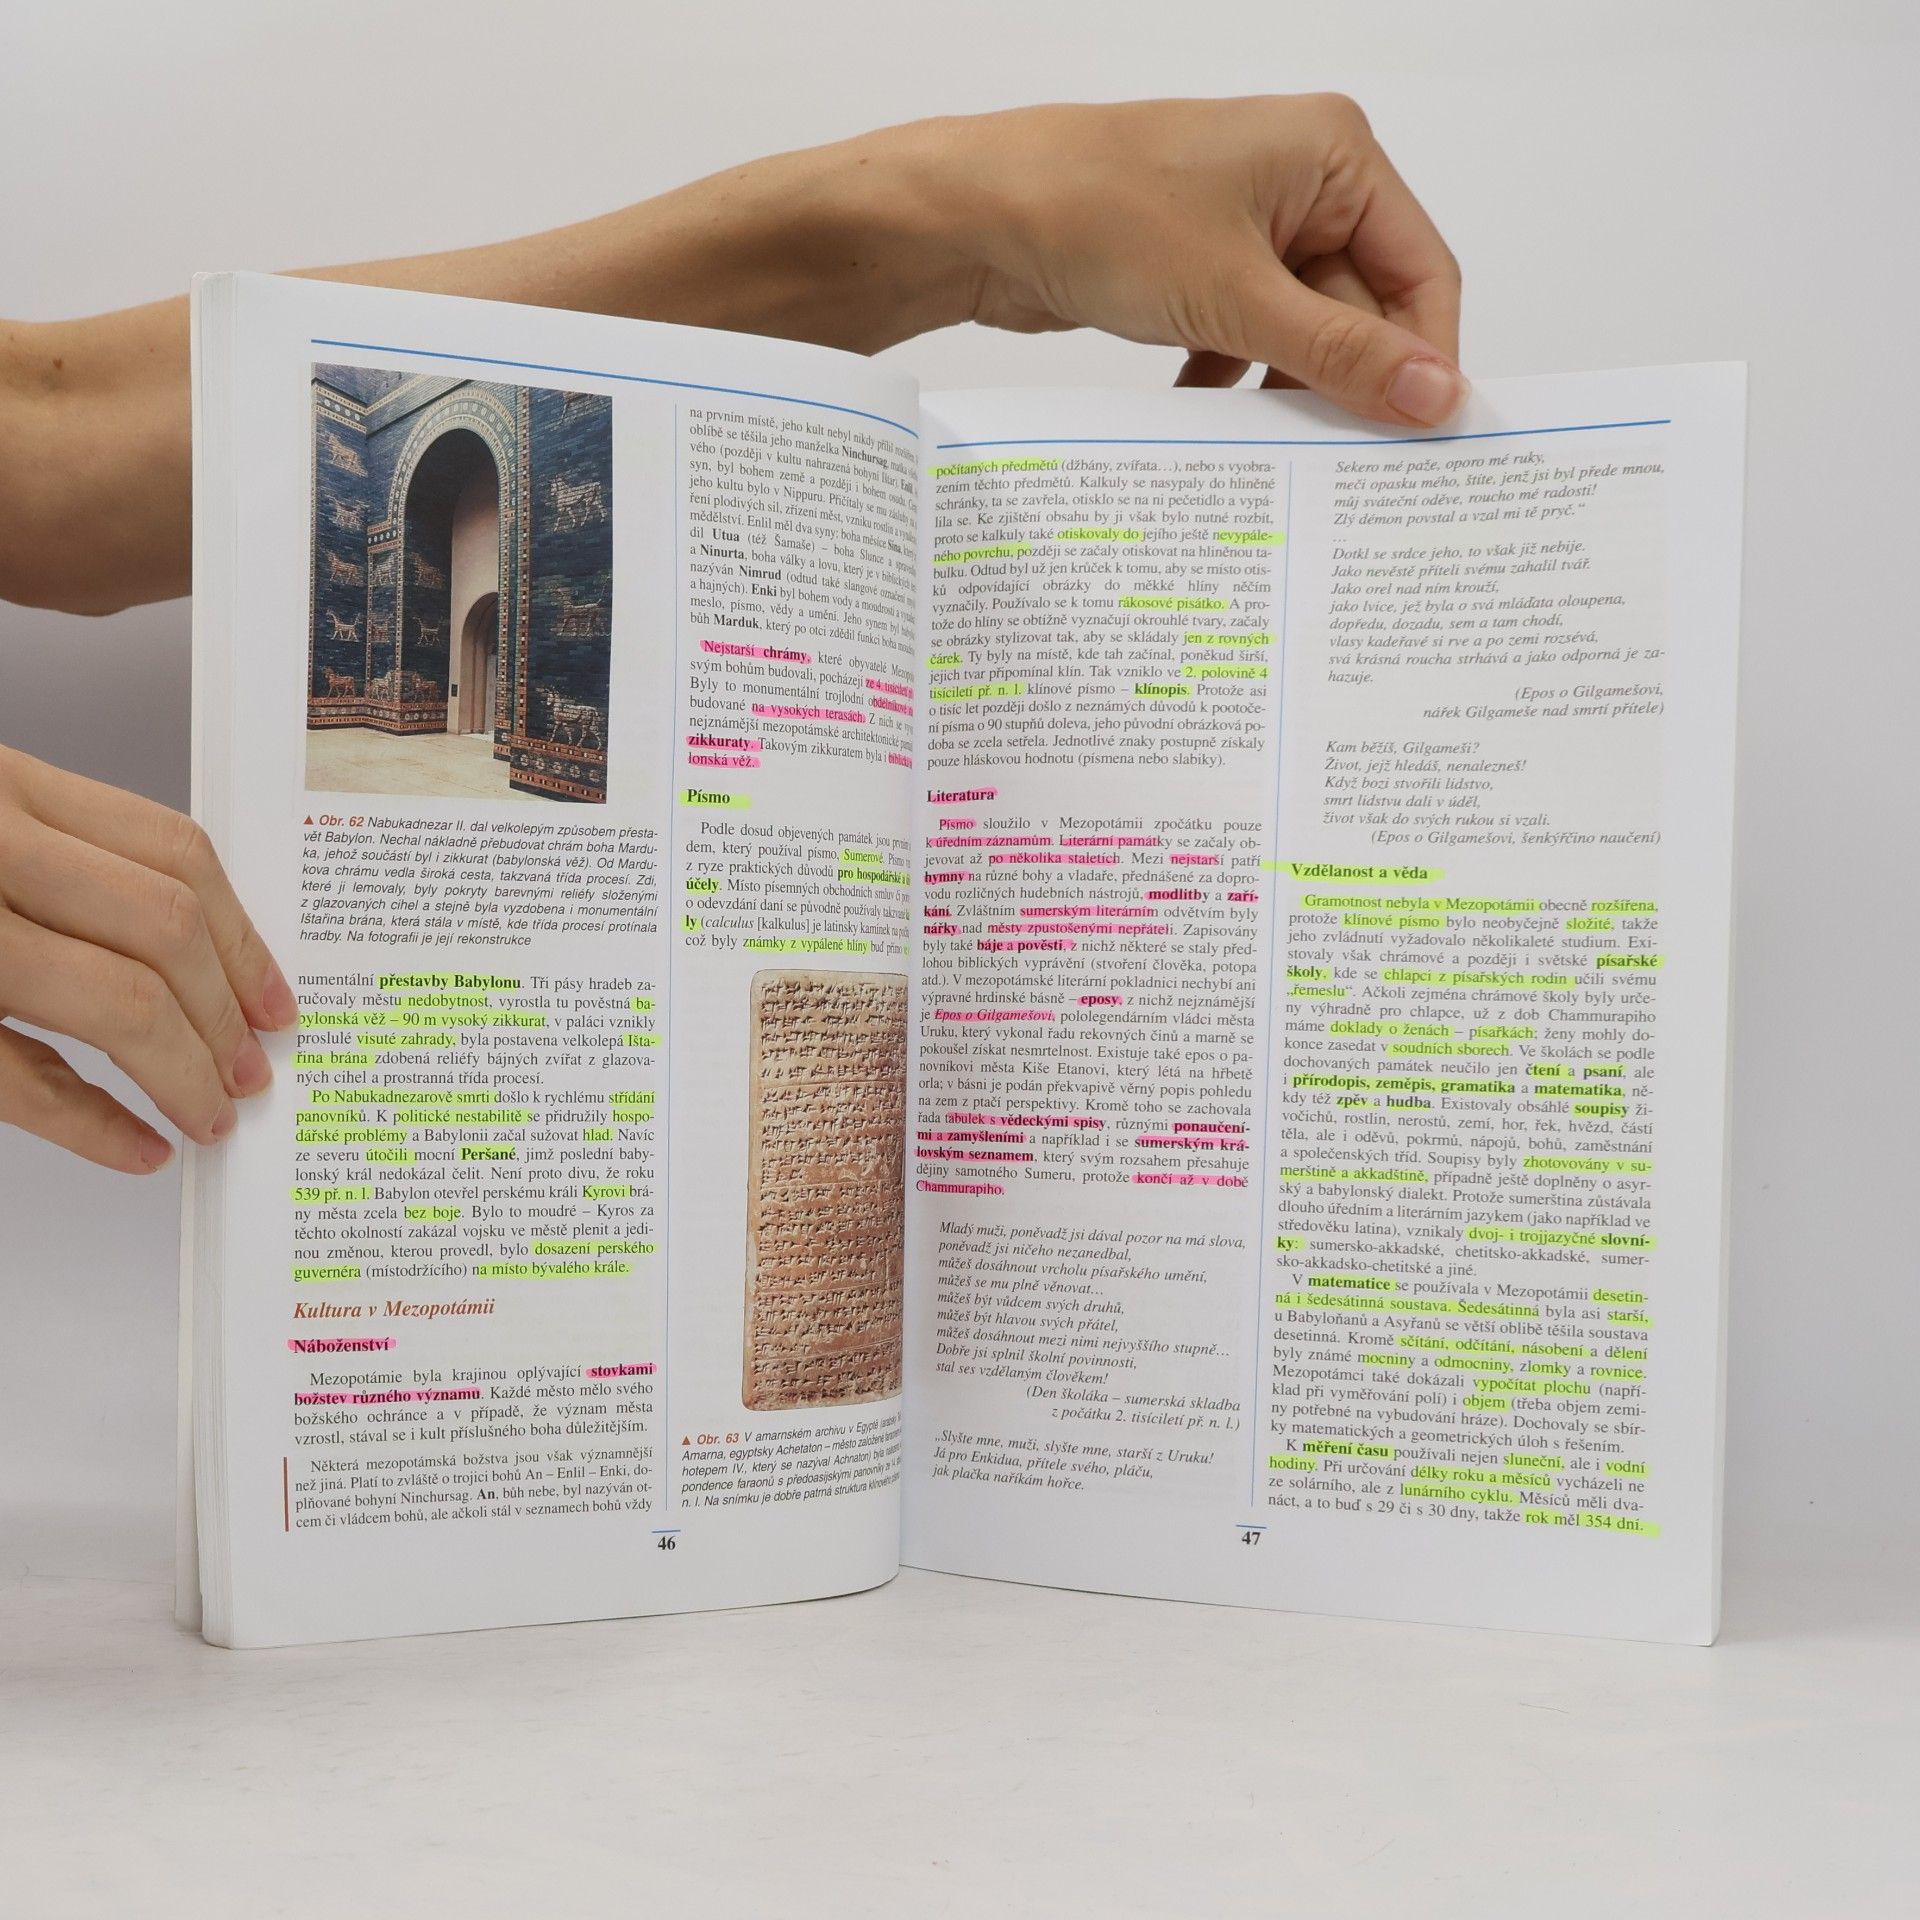 ▲ Obr. 62 Nabukadnezar II. dal velkolepým způsobem přesta-
vět Babylon. Nechal nákladně přebudovat chrám boha Mardu-
ka, jehož součástí byl i zikkurat (babylonská věž). Od Mardu-
kova chrámu vedla široká cesta, takzvaná třída procesí. Zdi,
které ji lemovaly, byly pokryty barevnými reliéfy složenými
z glazovaných cihel a stejně byla vyzdobena i monumentální
Ištařina brána, která stála v místě, kde třída procesí protínala
hradby. Na fotografii je její rekonstrukce
numentální přestavby Babylonu. Tři pásy hradeb za-
ručovaly městu nedobytnost, vyrostla tu pověstná ba-
bylonská věž – 90 m vysoký zikkurat, v paláci vznikly
proslulé visuté zahrady, byla postavena velkolepá Išta-
řina brána zdobená reliéfy bájných zvířat z glazova-
ných cihel a prostranná třída procesí.
Po Nabukadnezarově smrti došlo k rychlému střídání
panovníků. K politické nestabilitě se přidružily hospo-
dářské problémy a Babylonii začal sužovat hlad. Navíc
ze severu útočili mocní Peršané, jimž poslední baby-
lonský král nedokázal čelit. Není proto divu, že roku
539 př. n. l. Babylon otevřel perskému králi Kyrovi brá-
ny města zcela bez boje. Bylo to moudré – Kyros za
těchto okolností zakázal vojsku ve městě plenit a jedi-
nou změnou, kterou provedl, bylo dosazení perského
guvernéra (místodržícího) na místo bývalého krále.
Kultura v Mezopotámii
Náboženství
Mezopotámie byla krajinou oplývající stovkami
božstev různého významu. Každé město mělo svého
božského ochránce a v případě, že význam města
vzrostl, stával se i kult příslušného boha důležitějším.
Některá mezopotámská božstva jsou však významnější
než jiná. Platí to zvláště o trojici bohů An – Enlil – Enki, do-
plňované bohyní Ninchursag. An, bůh nebe, byl nazýván ot-
cem či vládcem bohů, ale ačkoli stál v seznamech bohů vždy
na prvním místě, jeho kult nebyl nikdy příliš rozšířen.
oblibě se těšila jeho manželka Ninchursag, matka
vého (později v kultu nahrazená bohyní Ištar). Enlil,
syn, byl bohem země a později i bohem osudu.
jeho kultu bylo v Nippuru. Přičítaly se mu zásluhy
ření plodivých sil, zřízení měst, vzniku rostlin a
mědělství. Enlil měl dva syny: boha měsíce Sína,
dil Utua (též Šamaše) – boha Slunce a
a Ninurta, boha války a lovu, který je v biblických
nazýván Nimrud (odtud také slangové označení
a hajných). Enki byl bohem vody a moudrosti a
meslo, písmo, vědy a umění. Jeho synem byl
bůh Marduk, který po otci zdědil funkci boha
Nejstarší chrámy, které obyvatelé
svým bohům budovali, pocházejí ze 4. tisíciletí
Byly to monumentální trojlodní obdélníkové
budované na vysokých terasách. Z nich se
nejznámější mezopotámské architektonické
zikkuraty. Takovým zikkuratem byla i biblická
lonská věž.
Písmo
Podle dosud objevených památek jsou
dem, který používal písmo, Sumerové. Písmo
z ryze praktických důvodů pro hospodářské a
účely. Místo písemných obchodních smluv či
o odevzdání daní se původně používaly takzvané
ly (calculus [kalkulus] je latinsky kamínek na
což byly známky z vypálené hlíny buď přímo
▲ Obr. 63 V amarnském archivu v Egyptě (arabsky
Amarna, egyptsky Achetaton – město založené
hotepem IV., který se nazýval Achnaton) byla
pondence faraonů s předoasijskými panovníky ze 14.
n. l. Na snímku je dobře patrná struktura klínového
46
počítaných předmětů (džbány, zvířata…), nebo s vyobra-
zením těchto předmětů. Kalkuly se nasypaly do hliněné
schránky, ta se zavřela, otisklo se na ni pečetidlo a vypá-
lila se. Ke zjištění obsahu by ji však bylo nutné rozbít,
proto se kalkuly také otiskovaly do jejího ještě nevypále-
ného povrchu, později se začaly otiskovat na hliněnou ta-
bulku. Odtud byl už jen krůček k tomu, aby se místo otis-
ků odpovídající obrázky do měkké hlíny něčím
vyznačily. Používalo se k tomu rákosové pisátko. A pro-
tože do hlíny se obtížně vyznačují okrouhlé tvary, začaly
se obrázky stylizovat tak, aby se skládaly jen z rovných
čárek. Ty byly na místě, kde tah začínal, poněkud širší,
jejich tvar připomínal klín. Tak vzniklo ve 2. polovině 4
tisíciletí př. n. l. klínové písmo – klínopis. Protože asi
o tisíc let později došlo z neznámých důvodů k pootoče-
ní písma o 90 stupňů doleva, jeho původní obrázková po-
doba se zcela setřela. Jednotlivé znaky postupně získaly
pouze hláskovou hodnotu (písmena nebo slabiky).
Literatura
Písmo sloužilo v Mezopotámii zpočátku pouze
k úředním záznamům. Literární památky se začaly ob-
jevovat až po několika staletích. Mezi nejstarší patří
hymny na různé bohy a vladaře, přednášené za dopro-
vodu rozličných hudebních nástrojů, modlitby a zaří-
kání. Zvláštním sumerským literárním odvětvím byly
nářky nad městy zpustošenými nepřáteli. Zapisovány
byly také báje a pověsti, z nichž některé se staly před-
lohou biblických vyprávění (stvoření člověka, potopa
atd.). V mezopotámské literární pokladnici nechybí ani
výpravné hrdinské básně – eposy, z nichž nejznámější
je Epos o Gilgamešovi, pololegendárním vládci města
Uruku, který vykonal řadu rekovných činů a marně se
pokoušel získat nesmrtelnost. Existuje také epos o pa-
novníkovi města Kiše Etanovi, který létá na hřbetě
orla; v básni je podán překvapivě věrný popis pohledu
na zem z ptačí perspektivy. Kromě toho se zachovala
řada tabulek s vědeckými spisy, různými ponaučení-
mi a zamyšleními a například i se sumerským krá-
lovským seznamem, který svým rozsahem přesahuje
dějiny samotného Sumeru, protože končí až v době
Chammurapiho.
Mladý muži, poněvadž jsi dával pozor na má slova,
poněvadž jsi ničeho nezanedbal,
můžeš dosáhnout vrcholu písařského umění,
můžeš se mu plně věnovat…
můžeš být vůdcem svých druhů,
můžeš být hlavou svých přátel,
můžeš dosáhnout mezi nimi nejvyššího stupně…
Dobře jsi splnil školní povinnosti,
stal ses vzdělaným člověkem!
(Den školáka – sumerská skladba
z počátku 2. tisíciletí př. n. l.)
„Slyšte mne, muži, slyšte mne, starší z Uruku!
Já pro Enkidua, přítele svého, pláču,
jak plačka naříkám hořce.
Sekero mé paže, oporo mé ruky,
meči opasku mého, štíte, jenž jsi byl přede mnou,
můj sváteční oděve, roucho mé radosti!
Zlý démon povstal a vzal mi tě pryč.“
…
Dotkl se srdce jeho, to však již nebije.
Jako nevěstě příteli svému zahalil tvář.
Jako orel nad ním krouží,
jako lvice, jež byla o svá mláďata oloupena,
dopředu, dozadu, sem a tam chodí,
vlasy kadeřavé si rve a po zemi rozsévá,
svá krásná roucha strhává a jako odporná je za-
hazuje.
(Epos o Gilgamešovi,
nářek Gilgameše nad smrtí přítele)
Kam běžíš, Gilgameši?
Život, jejž hledáš, nenalezneš!
Když bozi stvořili lidstvo,
smrt lidstvu dali v úděl,
život však do svých rukou si vzali.
(Epos o Gilgamešovi, šenkýřčino naučení)
Vzdělanost a věda
Gramotnost nebyla v Mezopotámii obecně rozšířena,
protože klínové písmo bylo neobyčejně složité, takže
jeho zvládnutí vyžadovalo několikaleté studium. Exi-
stovaly však chrámové a později i světské písařské
školy, kde se chlapci z písařských rodin učili svému
„řemeslu“. Ačkoli zejména chrámové školy byly urče-
ny výhradně pro chlapce, už z dob Chammurapiho
máme doklady o ženách – písařkách; ženy mohly do-
konce zasedat v soudních sborech. Ve školách se podle
dochovaných památek neučilo jen čtení a psaní, ale
i přírodopis, zeměpis, gramatika a matematika, ně-
kdy též zpěv a hudba. Existovaly obsáhlé soupisy ži-
vočichů, rostlin, nerostů, zemí, hor, řek, hvězd, částí
těla, ale i oděvů, pokrmů, nápojů, bohů, zaměstnání
a společenských tříd. Soupisy byly zhotovovány v su-
merštině a akkadštině, případně ještě doplněny o asyr-
ský a babylonský dialekt. Protože sumerština zůstávala
dlouho úředním a literárním jazykem (jako například ve
středověku latina), vznikaly dvoj- i trojjazyčné slovní-
ky: sumersko-akkadské, chetitsko-akkadské, sumer-
sko-akkadsko-chetitské a jiné.
V matematice se používala v Mezopotámii desetin-
ná i šedesátinná soustava. Šedesátinná byla asi starší,
u Babyloňanů a Asyřanů se větší oblibě těšila soustava
desetinná. Kromě sčítání, odčítání, násobení a dělení
byly známé mocniny a odmocniny, zlomky a rovnice.
Mezopotámci také dokázali vypočítat plochu (napří-
klad při vyměřování polí) i objem (třeba objem zemi-
ny potřebné na vybudování hráze). Dochovaly se sbír-
ky matematických a geometrických úloh s řešením.
K měření času používali nejen sluneční, ale i vodní
hodiny. Při určování délky roku a měsíců vycházeli ne
ze solárního, ale z lunárního cyklu. Měsíců měli dva-
náct, a to buď s 29 či s 30 dny, takže rok měl 354 dní.
47